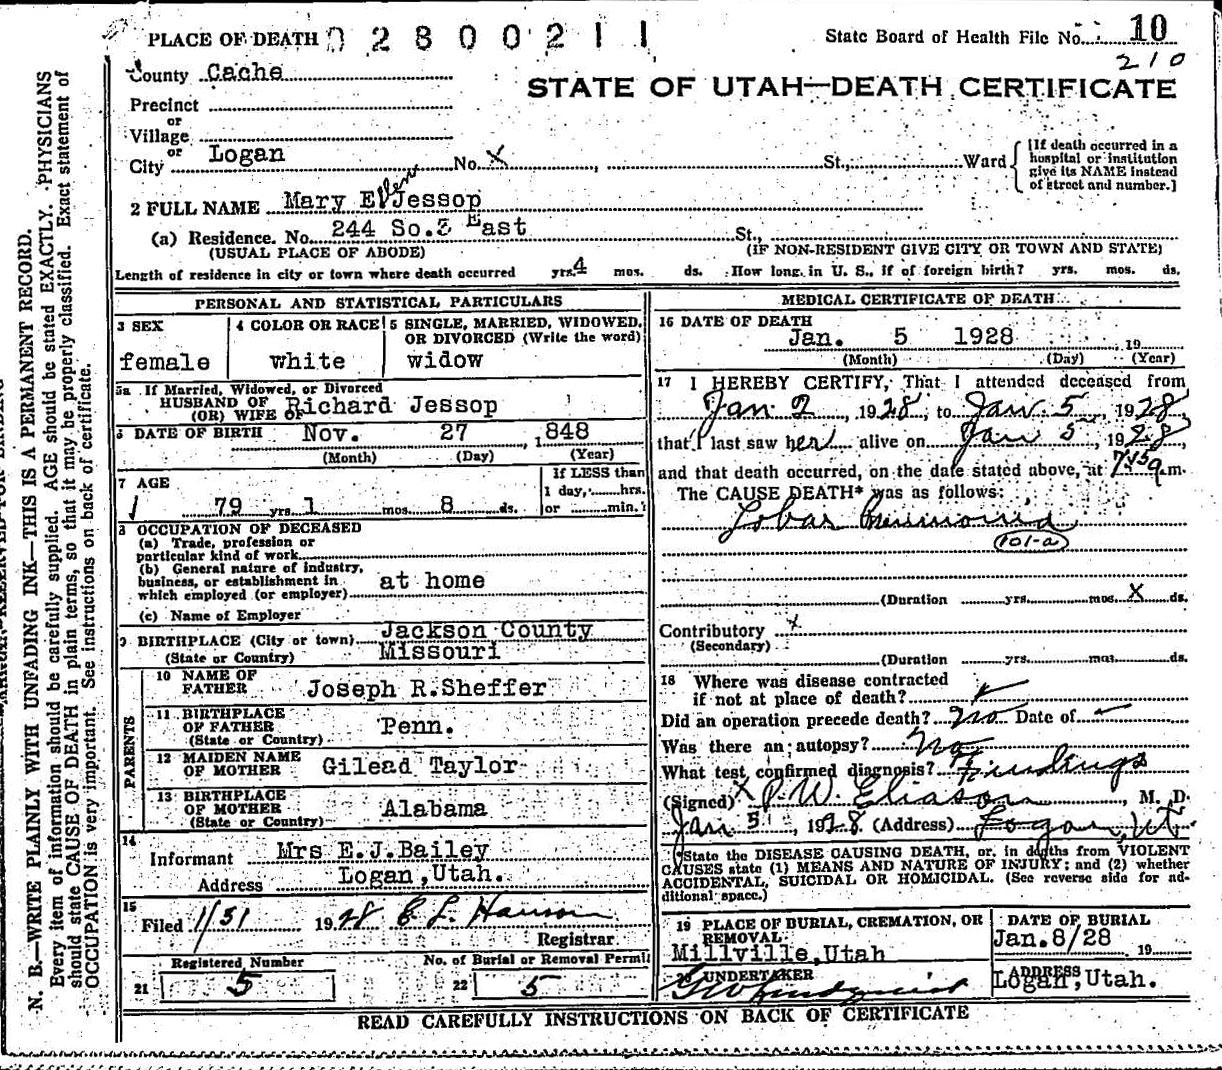 PLACE OF DEATH 02800211 State Board of Health File No. 10
210
County Cache
STATE OF UTAH—DEATH CERTIFICATE
Precinct
or
Village
or
City Logan No. X St., Ward {[If death occurred in a hospital or institution give its NAME instead of street and number.]
2 FULL NAME Mary Ellen Jessop
(a) Residence. No. 244 So.3 East St.,
(USUAL PLACE OF ABODE) (IF NON-RESIDENT GIVE CITY OR TOWN AND STATE)
Length of residence in city or town where death occurred yrs. 4 mos. ds. How long in U. S., if of foreign birth? yrs. mos. ds.
PERSONAL AND STATISTICAL PARTICULARS
3 SEX
female
4 COLOR OR RACE
white
5 SINGLE, MARRIED, WIDOWED,
OR DIVORCED (Write the word)
widow
5a If Married, Widowed, or Divorced
HUSBAND OF
(OR) WIFE OF Richard Jessop
6 DATE OF BIRTH Nov. 27, 1848
(Month) (Day) (Year)
7 AGE
79 yrs. 1 mos. 8 ds.
If LESS than
1 day, hrs.
or min.
8 OCCUPATION OF DECEASED
(a) Trade, profession or
particular kind of work
(b) General nature of industry,
business, or establishment in
which employed (or employer) at home
(c) Name of Employer
9 BIRTHPLACE (City or town) Jackson County
(State or Country) Missouri
PARENTS
10 NAME OF
FATHER Joseph R.Sheffer
11 BIRTHPLACE
OF FATHER
(State or Country) Penn.
12 MAIDEN NAME
OF MOTHER Gilead Taylor
13 BIRTHPLACE
OF MOTHER
(State or Country) Alabama
14
Informant Mrs E.J.Bailey
Address Logan,Utah.
15
Filed 1/31 1928 C L Hanson
Registrar
Registered Number No. of Burial or Removal Permit
21 5 22 5
MEDICAL CERTIFICATE OF DEATH
16 DATE OF DEATH
Jan. 5 1928, 19
(Month) (Day) (Year)
17 I HEREBY CERTIFY, That I attended deceased from
Jan 2, 1928, to Jan. 5, 1928,
that I last saw her alive on Jan 5, 1928
and that death occurred, on the date stated above, at 745 a.m.
The CAUSE DEATH* was as follows:
Lobar Pneumonia
101-a
(Duration yrs. mos. X ds.
Contributory X
(Secondary)
(Duration yrs. mos. ds.
18 Where was disease contracted
if not at place of death?
Did an operation precede death? No Date of
Was there an autopsy? No
What test confirmed diagnosis? Findings
(Signed) X P. W. Eliason, M. D.
Jan 5, 1928. (Address) Logan, Ut.
*State the DISEASE CAUSING DEATH, or, in deaths from VIOLENT
CAUSES state (1) MEANS AND NATURE OF INJURY; and (2) whether
ACCIDENTAL, SUICIDAL OR HOMICIDAL. (See reverse side for ad-
ditional space.)
19 PLACE OF BURIAL, CREMATION, OR
REMOVAL
Millville,Utah
DATE OF BURIAL
Jan.8/28 19
20 UNDERTAKER
ADDRESS
Logan,Utah.
READ CAREFULLY INSTRUCTIONS ON BACK OF CERTIFICATE
N. B.—WRITE PLAINLY WITH UNFADING INK—THIS IS A PERMANENT RECORD.
Every item of information should be carefully supplied. AGE should be stated EXACTLY. PHYSICIANS
should state CAUSE OF DEATH in plain terms, so that it may be properly classified. Exact statement of
OCCUPATION is very important. See instructions on back of certificate.